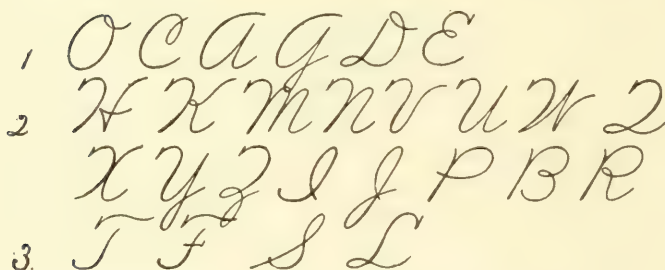 1 O C A G D E
2 H K M N V U W Q
X Y Z I J P B R
3. T F S L